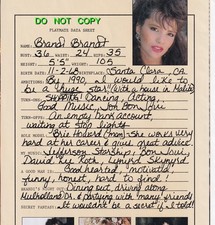 DO NOT COPY
PLAYMATE DATA SHEET
NAME: Brandi Brandt
BUST: 36 WAIST: 24 HIPS: 35
HEIGHT: 5'5" WEIGHT: 105
BIRTH DATE: 11-2-68 BIRTHPLACE: Santa Clara, CA
By 1990, I would like to
be a "huge star" (with a house in Malibu)
SHOPPING! Dancing, Acting,
Good Music, Jon Bon Jovi
An empty bank account,
waiting at stop lights
(my mom) she works very
hard at her career & gives great advice
Jefferson Starship, Bon Jovi,
David Lee Roth, Lynyrd Skynyrd
Good hearted, motivated,
funny, honest, hard to find!
Dining out, driving along
Mulholland Dr. & partying with many friends
It wouldn't be a secret if I told!